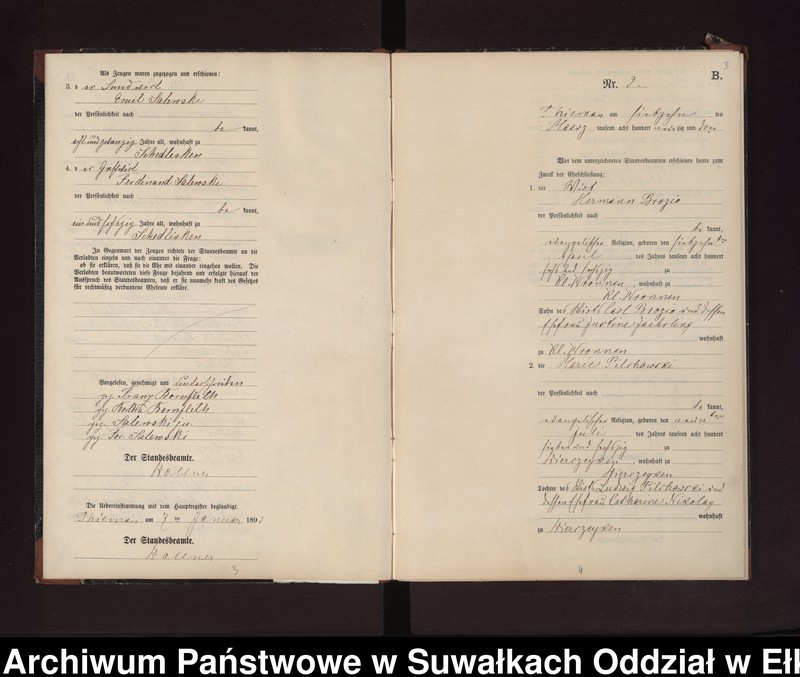 Als Zeugen waren zugezogen und erschienen:
3. der
Emil Salewski
der Persönlichkeit nach
be kannt,
acht und zwanzig Jahre alt, wohnhaft zu
Schedlisken
4. der Gastwirt
Ferdinand Salewski
der Persönlichkeit nach
be kannt,
ein und sechszig Jahre alt, wohnhaft zu
Schedlisken
In Gegenwart der Zeugen richtete der Standesbeamte an die
Verlobten einzeln und nach einander die Frage:
ob sie erklären, daß sie die Ehe mit einander eingehen wollen. Die
Verlobten beantworteten diese Frage bejahend und erfolgte hierauf der
Ausspruch des Standesbeamten, daß er sie nunmehr kraft des Gesetzes
für rechtmäßig verbundene Eheleute erkläre.
Vorgelesen, genehmigt und unterschrieben
gez. Franz Bornfleth
gez. Bertha Bornfleth
gez. Salewski jr.
gez. Fer Salewski
Der Standesbeamte.
Dollner
Die Uebereinstimmung mit dem Hauptregister beglaubigt.
am 7 ten Januar 1893
Der Standesbeamte.
Dollner
3
3
B.
Nr. 2.
am siebzehn ten
Maerz tausend acht hundert neunzig und drei
Vor dem unterzeichneten Standesbeamten erschienen heute zum
Zweck der Eheschließung:
1. der Wirt
Hermann Brozio
der Persönlichkeit nach
be kannt,
evangelischer Religion, geboren den siebzehn ten
April des Jahres tausend acht hundert
sechs und sechszig zu
Kl. Kronnen, wohnhaft zu
Kl. Kronnen
Sohn des Wirts Carl Brozio und dessen
Ehefrau Justine
wohnhaft
zu Kl. Kronnen
2. die Marie Pilchowski
der Persönlichkeit nach
be kannt,
evangelischer Religion, geboren den neun ten
Juli des Jahres tausend acht hundert
sieben und sechszig zu
Wierczeyken, wohnhaft zu
Wierczeyken
Tochter des Wirts Ludwig Pilchowski und
dessen Ehefrau Catharine Nikolay
wohnhaft
zu Wierczeyken
4
Archiwum Państwowe w Suwałkach Oddział w Ełk